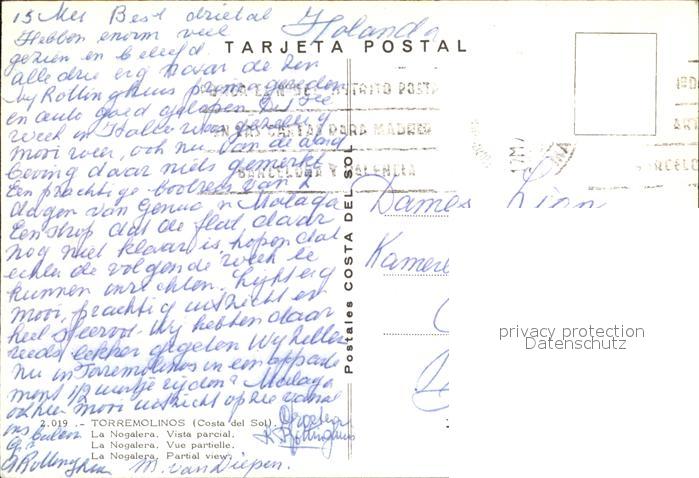 15 Mei Best drietal
Hebben enorm veel
gezien en beleefd.
alle drie erg naar de zin
en auto goed gelopen. De 1ste
week in Italië was geweldig
mooi weer, ook nu van de aard
beving daar niets gemerkt
Een prachtige bootreis van 2
dagen van Genua n. Malaga
Een strop dat de flat daar
nog niet klaar is, hopen dat
echter de volgende week te
kunnen inrichten. Ligt erg
mooi, prachtig uitzicht en
heel sfeervol. Wij hebben daar
reeds lekker gegeten Wij zitten
nu in Torremolinos in een appartement
1/2 uurtje rijden v Malaga
ook hier mooi uitzicht op zee vanaf
ons balcon
Gr.
M. van Diepen.
Holanda
TARJETA POSTAL
EN LAS CARTAS PARA MADRID
BARCELONA Y VALENCIA
Postales COSTA DEL SOL
Dames Linn
Kamer
privacy protection
Datenschutz
2.019 .- TORREMOLINOS (Costa del Sol).
La Nogalera. Vista parcial.
La Nogalera. Vue partielle.
La Nogalera. Partial view.
De groeten